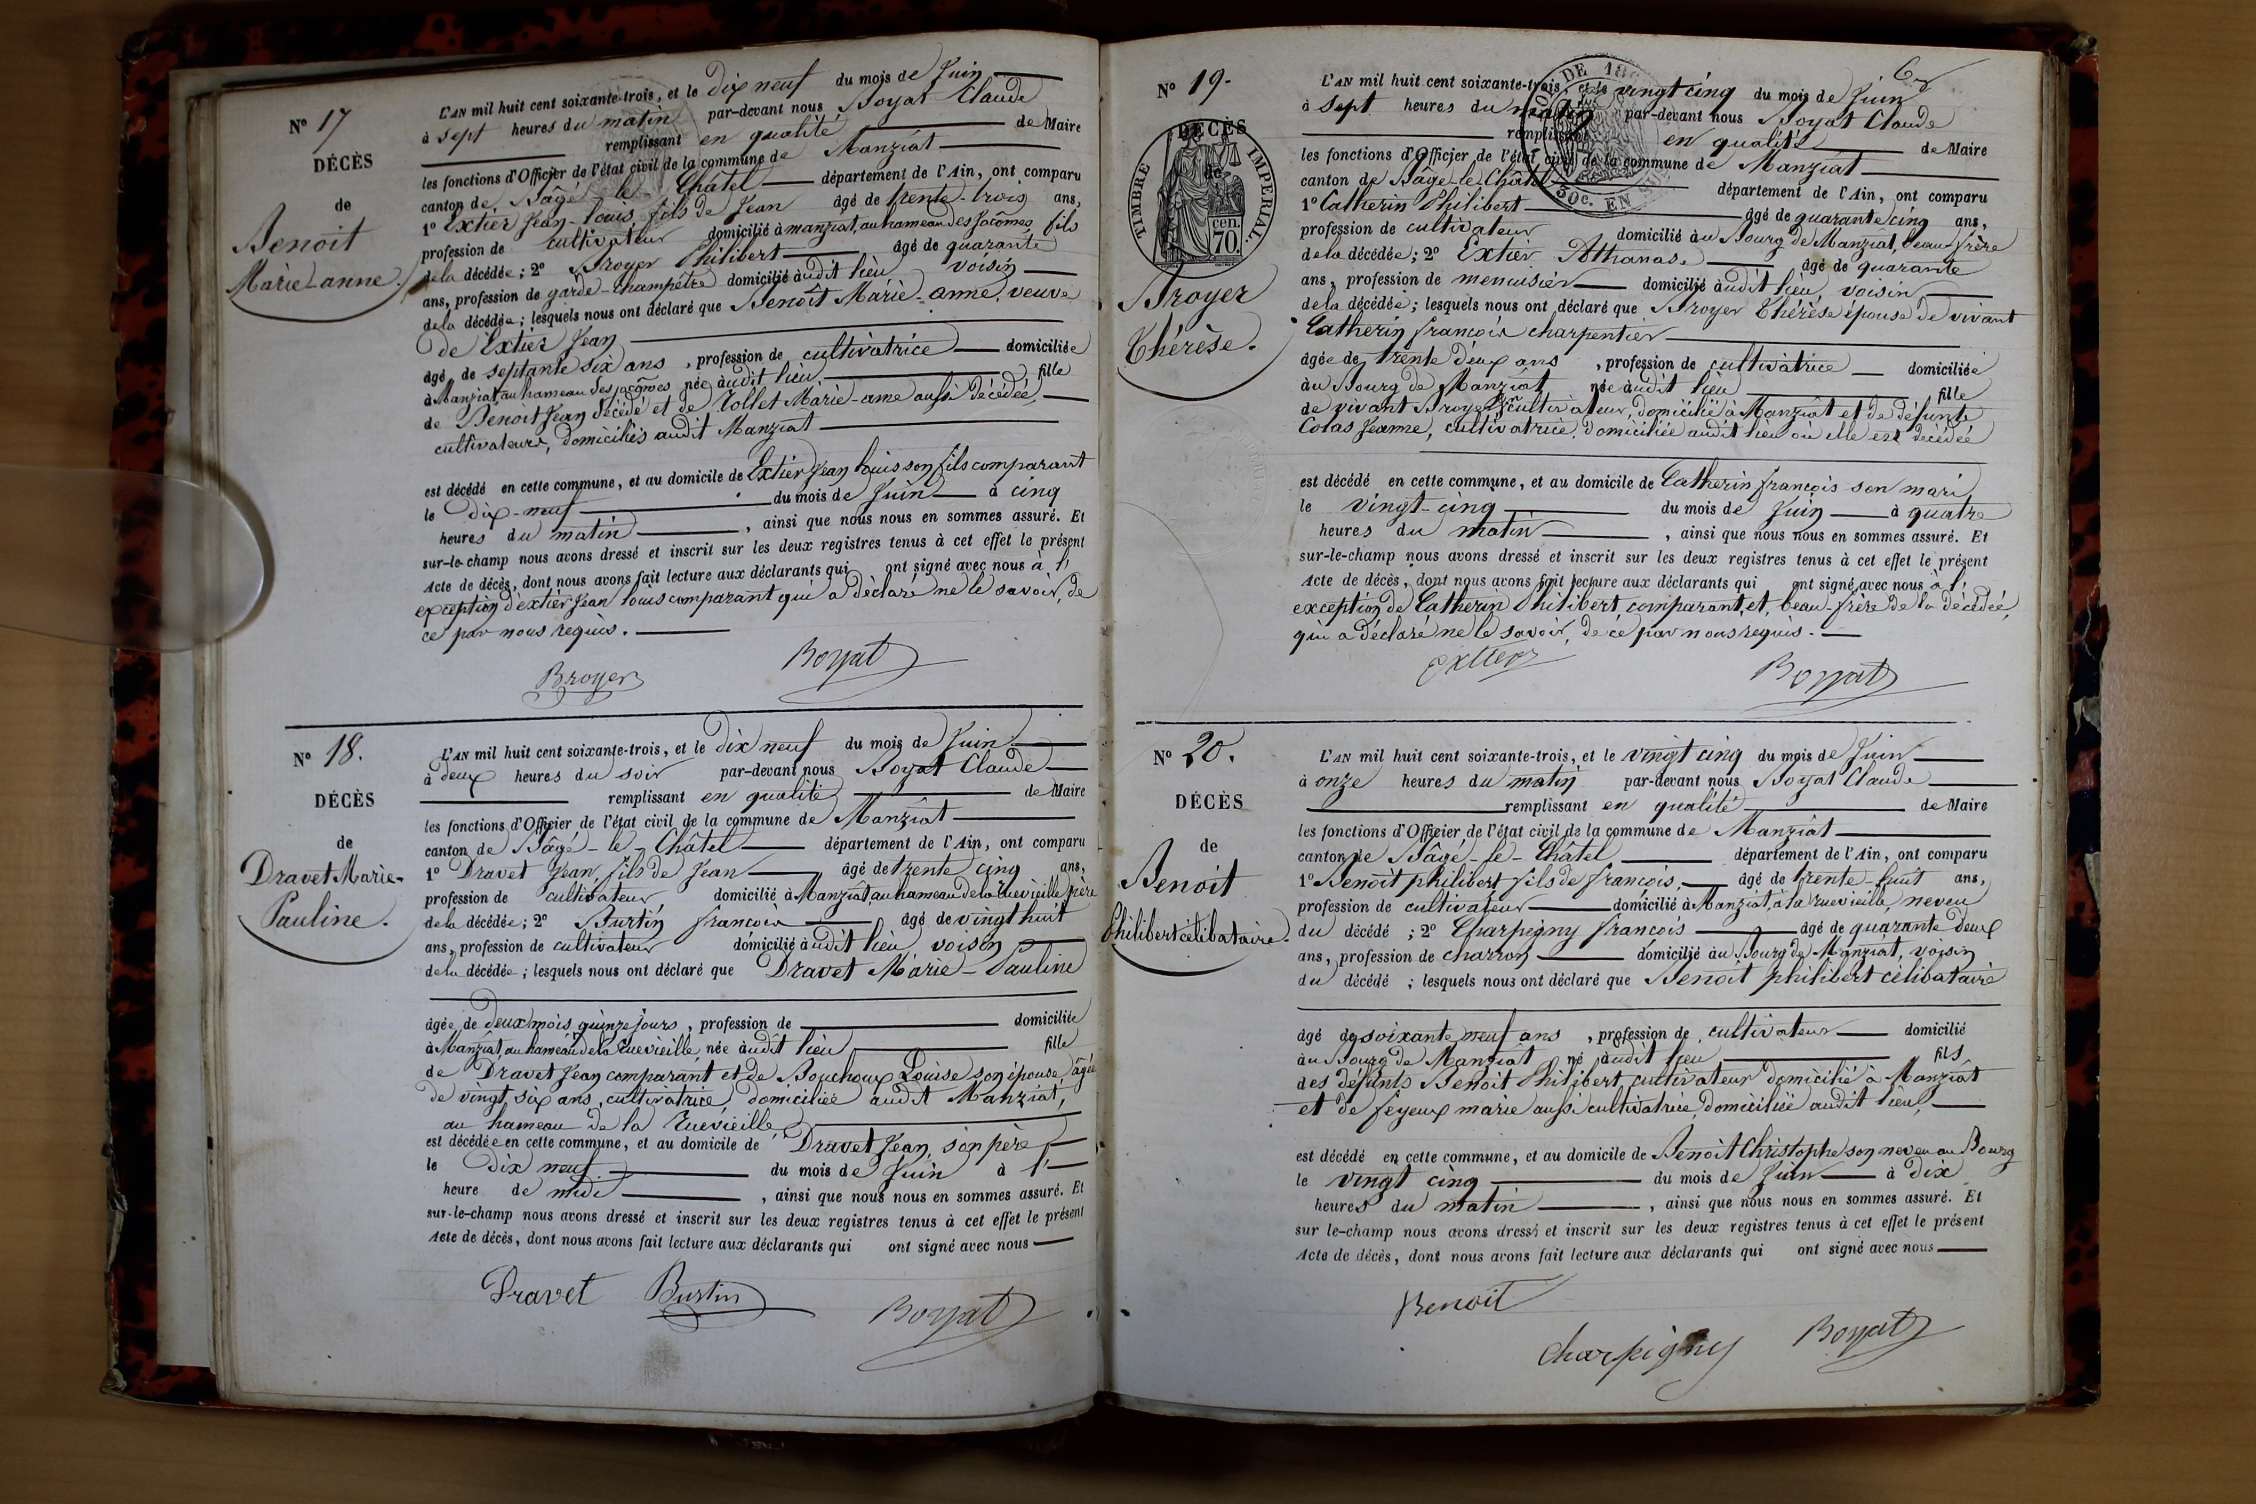 Nº 17
DÉCÈS
de
Benoit
Marie-anne.
L'AN mil huit cent soixante-trois, et le dix neuf du mois de Juin
à sept heures du matin par-devant nous Boyat Claude
remplissant en qualité de Maire
les fonctions d'Officier de l'état civil de la commune de Manziat
canton de Bâgé le Châtel département de l'Ain, ont comparu
1º Extier Jean-Louis fils de Jean âgé de trente-trois ans,
profession de cultivateur domicilié à manziat, au hameau des Jacômes fils
de la décédée; 2º Broyer Philibert âgé de quarante
ans, profession de garde-champêtre domicilié audit lieu voisin
de la décédée; lesquels nous ont déclaré que Benoît Marie-anne, veuve
de Extier Jean
âgé de septante six ans, profession de cultivatrice domiciliée
à Manziat, au hameau des jacômes née audit lieu fille
de Benoit Jean décédé et de Tollet Marie-anne aussi décédée,
cultivateurs, domiciliés audit Manziat
est décédé en cette commune, et au domicile de Extier Jean Louis son fils comparant
le dix-neuf du mois de Juin à cinq
heures du matin, ainsi que nous nous en sommes assuré. Et
sur-le-champ nous avons dressé et inscrit sur les deux registres tenus à cet effet le présent
Acte de décès, dont nous avons fait lecture aux déclarants qui ont signé avec nous à l'
exception d'extier Jean Louis comparant qui a déclaré ne le savoir, de
ce par nous requis.
Broyer Boyat
Nº 18.
DÉCÈS
de
Dravet Marie-
Pauline.
L'AN mil huit cent soixante-trois, et le dix neuf du mois de Juin
à deux heures du soir par-devant nous Boyat Claude
remplissant en qualité de Maire
les fonctions d'Officier de l'état civil de la commune de Manziat
canton de Bâgé-le-Châtel département de l'Ain, ont comparu
1º Dravet Jean fils de Jean âgé de trente cinq ans,
profession de cultivateur domicilié à Manziat, au hameau de la Ruevieille, père
de la décédée; 2º Burtin françois âgé de vingt huit
ans, profession de cultivateur domicilié audit lieu voisin
de la décédée; lesquels nous ont déclaré que Dravet Marie-Pauline
âgée de deux mois quinze jours, profession de domiciliée
à Manziat, au hameau de la Ruevieille, née audit lieu fille
de Dravet Jean comparant et de Bouchoux Louise son épouse âgée
de vingt six ans, cultivatrice, domiciliée audit Manziat,
au hameau de la Ruevieille
est décédée en cette commune, et au domicile de Dravet Jean, son père
le dix neuf du mois de Juin à l'
heure de midi, ainsi que nous nous en sommes assuré. Et
sur-le-champ nous avons dressé et inscrit sur les deux registres tenus à cet effet le présent
Acte de décès, dont nous avons fait lecture aux déclarants qui ont signé avec nous
Dravet Burtin Boyat
Nº 19.
DÉCÈS
de
TIMBRE IMPÉRIAL.
cen.
70
Broyer
Thérèse.
30C. EN SUS
L'AN mil huit cent soixante-trois, et le vingt cinq du mois de Juin
à sept heures du matin par-devant nous Boyat Claude
remplissant en qualité de Maire
les fonctions d'Officier de l'état civil de la commune de Manziat
canton de Bâgé-le-Châtel département de l'Ain, ont comparu
1º Catherin Philibert âgé de quarante cinq ans,
profession de cultivateur domicilié au Bourg de Manziat, beau-frère
de la décédée; 2º Extier Athanase âgé de quarante
ans, profession de menuisier domicilié audit lieu voisin
de la décédée; lesquels nous ont déclaré que Broyer Thérèse épouse de vivant
Catherin françois charpentier
âgée de trente deux ans, profession de cultivatrice domiciliée
au Bourg de Manziat née audit lieu fille
de vivant Broyer cultivateur, domicilié à Manziat et de défunte
Colas Jeanne, cultivatrice, domiciliée audit lieu où elle est décédée
est décédé en cette commune, et au domicile de Catherin françois son mari
le vingt-cinq du mois de Juin à quatre
heures du matin, ainsi que nous nous en sommes assuré. Et
sur-le-champ nous avons dressé et inscrit sur les deux registres tenus à cet effet le présent
Acte de décès, dont nous avons fait lecture aux déclarants qui ont signé avec nous à l'
exception de Catherin Philibert, comparant, et beau-frère de la décédée,
qui a déclaré ne le savoir, de ce par nous requis.
Extier Boyat
Nº 20.
DÉCÈS
de
Benoit
Philibert célibataire.
L'AN mil huit cent soixante-trois, et le vingt cinq du mois de Juin
à onze heures du matin par-devant nous Boyat Claude
remplissant en qualité de Maire
les fonctions d'Officier de l'état civil de la commune de Manziat
canton de Bâgé-le-Châtel département de l'Ain, ont comparu
1º Benoit philibert fils de françois, âgé de trente-huit ans,
profession de cultivateur domicilié à Manziat, à la ruevieille, neveu
du décédé; 2º Charpigny françois âgé de quarante deux
ans, profession de charron domicilié au Bourg de Manziat, voisin
du décédé; lesquels nous ont déclaré que Benoit philibert célibataire
âgé de soixante neuf ans, profession de cultivateur domicilié
au Bourg de Manziat né audit lieu fils
des défunts Benoit Philibert, cultivateur domicilié à Manziat
et de feyeux marie aussi cultivatrice, domiciliée audit lieu,
est décédé en cette commune, et au domicile de Benoit Christophe son neveu au Bourg
le vingt cinq du mois de Juin à dix
heures du matin, ainsi que nous nous en sommes assuré. Et
sur le-champ nous avons dressé et inscrit sur les deux registres tenus à cet effet le présent
Acte de décès, dont nous avons fait lecture aux déclarants qui ont signé avec nous
Benoit
Charpigny Boyat